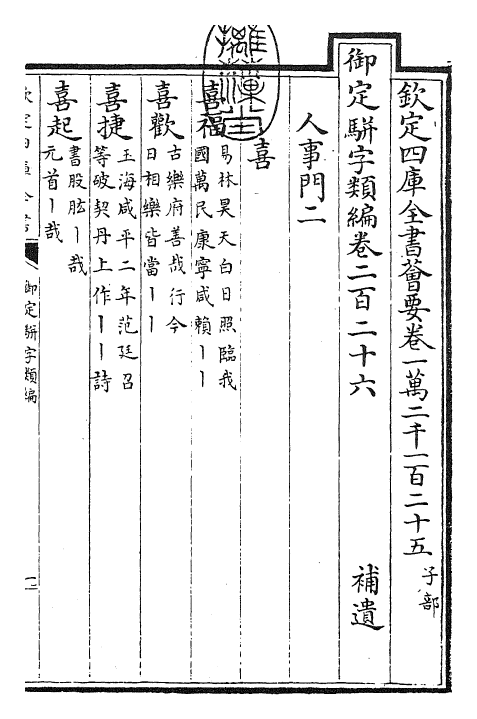 欽定四庫全書薈要卷一萬二千一百二十五 子部
御定駢字類編卷二百二十六 補遺
人事門二
喜
喜福 易林昊天白日照臨我
國萬民康寧咸賴丨丨
喜歡 古樂府善哉行今
日相樂皆當丨丨
喜捷 玉海咸平二年范廷召
等破契丹上作丨丨詩
喜起 書股肱丨哉
元首丨哉
御定駢字類編
一